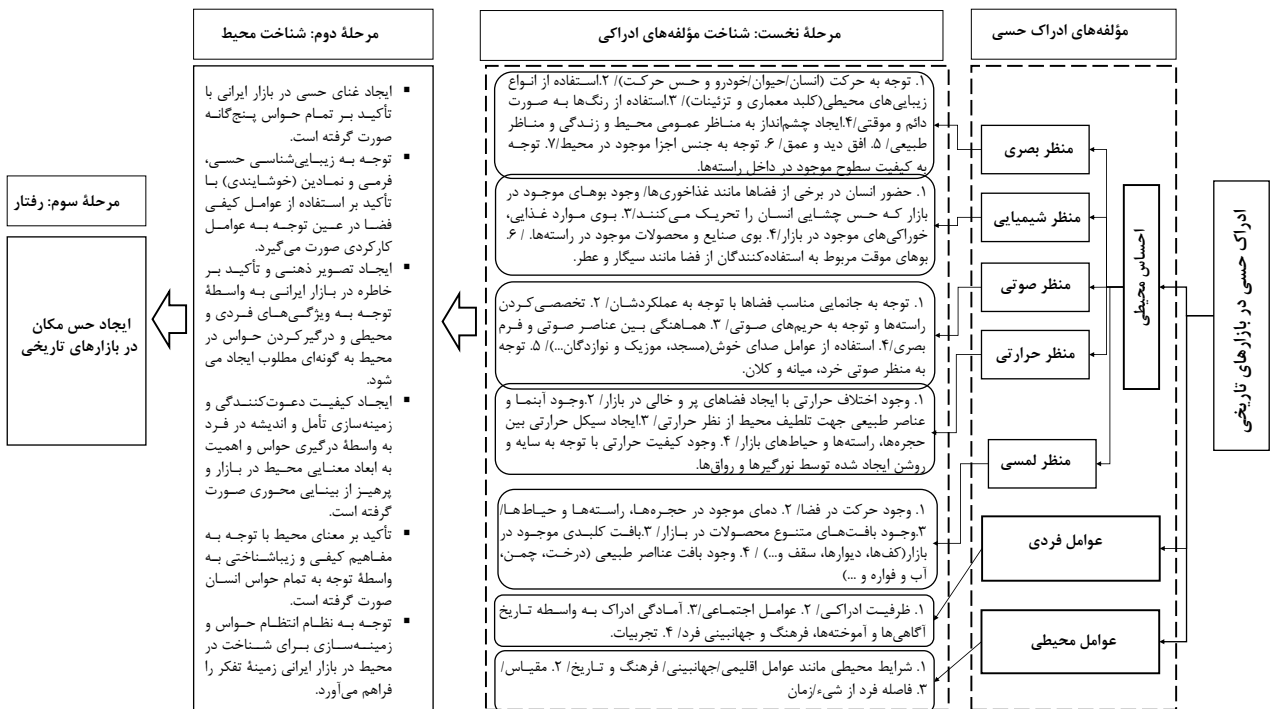 مؤلفه‌های ادراک حسی
مرحلهٔ نخست: شناخت مؤلفه‌های ادراکی
مرحلهٔ دوم: شناخت محیط
ادراک حسی در بازارهای تاریخی
احساس محیطی
منظر بصری
منظر شیمیایی
منظر صوتی
منظر حرارتی
منظر لمسی
عوامل فردی
عوامل محیطی
۱. توجه به حرکت (انسان/حیوان/خودرو و حس حرکت)/ ۲.استفاده از انواع
زیبایی‌های محیطی(کلبد معماری و تزئینات)/ ۳.استفاده از رنگ‌ها به صورت
دائم و موقتی/۴.ایجاد چشم‌انداز به مناظر عمومی محیط و زندگی و مناظر
طبیعی/ ۵. افق دید و عمق/ ۶. توجه به جنس اجزا موجود در محیط/۷. توجه
به کیفیت سطوح موجود در داخل راسته‌ها.
۱. حضور انسان در برخی از فضاها مانند غذاخوری‌ها/ وجود بوهای موجود در
بازار که حس چشایی انسان را تحریک می‌کنند/۳. بوی موارد غذایی،
خوراکی‌های موجود در بازار/۴. بوی صنایع و محصولات موجود در راسته‌ها. / ۶.
بوهای موقت مربوط به استفاده‌کنندگان از فضا مانند سیگار و عطر.
۱. توجه به جانمایی مناسب فضاها با توجه به عملکردشان/ ۲. تخصصی کردن
راسته‌ها و توجه به حریم‌های صوتی/ ۳. هماهنگی بین عناصر صوتی و فرم
بصری/۴. استفاده از عوامل صدای خوش(مسجد، موزیک و نوازدگان...)/ ۵. توجه
به منظر صوتی خرد، میانه و کلان.
۱. وجود اختلاف حرارتی با ایجاد فضاهای پر و خالی در بازار/ ۲.وجود آبنما و
عناصر طبیعی جهت تلطیف محیط از نظر حرارتی/ ۳.ایجاد سیکل حرارتی بین
حجره‌ها، راسته‌ها و حیاط‌های بازار/ ۴. وجود کیفیت حرارتی با توجه به سایه و
روشن ایجاد شده توسط نورگیرها و رواق‌ها.
۱. وجود حرکت در فضا/ ۲. دمای موجود در حجره‌ها، راسته‌ها و حیاط‌ها/
۳.وجود بافت‌های متنوع محصولات در بازار/ ۳.بافت کلبدی موجود در
بازار(کف‌ها، دیوارها، سقف و...) / ۴. وجود بافت عنااصر طبیعی (درخت، چمن،
آب و فواره و ...)
۱. ظرفیت ادراکی/ ۲. عوامل اجتماعی/۳. آمادگی ادراک به واسطه تاریخ
آگاهی‌ها و آموخته‌ها، فرهنگ و جهانبینی فرد/ ۴. تجربیات.
۱. شرایط محیطی مانند عوامل اقلیمی/جهانبینی/ فرهنگ و تاریخ/ ۲. مقیاس/
۳. فاصله فرد از شیء/زمان
▪ ایجاد غنای حسی در بازار ایرانی با
تأکید بر تمام حواس پنج‌گانه
صورت گرفته است.
▪ توجه به زیبایی‌شناسی حسی،
فرمی و نمادین (خوشایندی) با
تأکید بر استفاده از عوامل کیفی
فضا در عین توجه به عوامل
کارکردی صورت می‌گیرد.
▪ ایجاد تصویر ذهنی و تأکید بر
خاطره در بازار ایرانی به واسطهٔ
توجه به ویژگی‌های فردی و
محیطی و درگیرکردن حواس در
محیط به گونه‌ای مطلوب ایجاد می
شود.
▪ ایجاد کیفیت دعوت‌کنندگی و
زمینه‌سازی تأمل و اندیشه در فرد
به واسطهٔ درگیری حواس و اهمیت
به ابعاد معنایی محیط در بازار و
پرهیز از بینایی محوری صورت
گرفته است.
▪ تأکید بر معنای محیط با توجه به
مفاهیم کیفی و زیباشناختی به
واسطهٔ توجه به تمام حواس انسان
صورت گرفته است.
▪ توجه به نظام انتظام حواس و
زمینه‌سازی برای شناخت در
محیط در بازار ایرانی زمینهٔ تفکر را
فراهم می‌آورد.
مرحلهٔ سوم: رفتار
ایجاد حس مکان
در بازارهای تاریخی